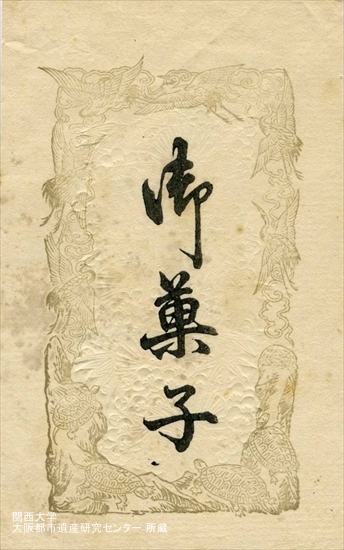 御菓子
関西大学
大阪都市遺産研究センター 所蔵